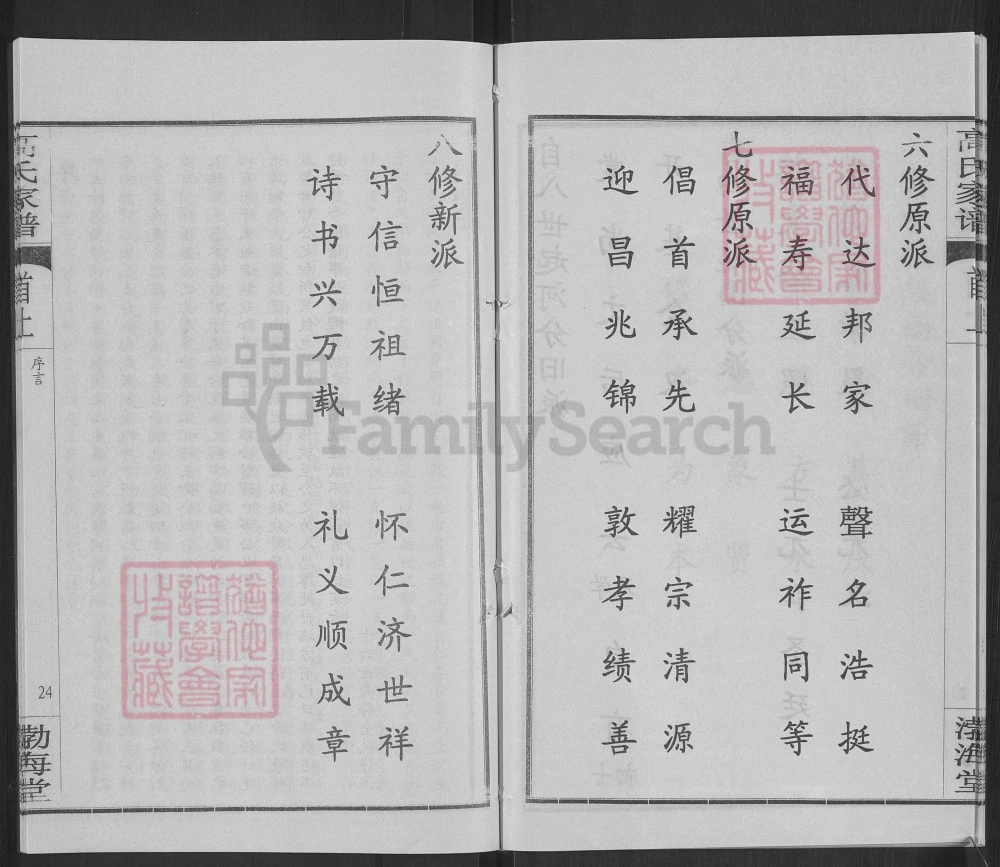 高氏家谱
首上
渤海堂
六修原派
代达邦家 聲名浩挺
福寿延长 运祚同等
七修原派
倡首承先 耀宗清源
迎昌兆锦 敦孝绩善
八修新派
守信恒祖绪 怀仁济世祥
诗书兴万载 礼义顺成章
高氏家谱
首上
序言
24
勃海堂
FamilySearch